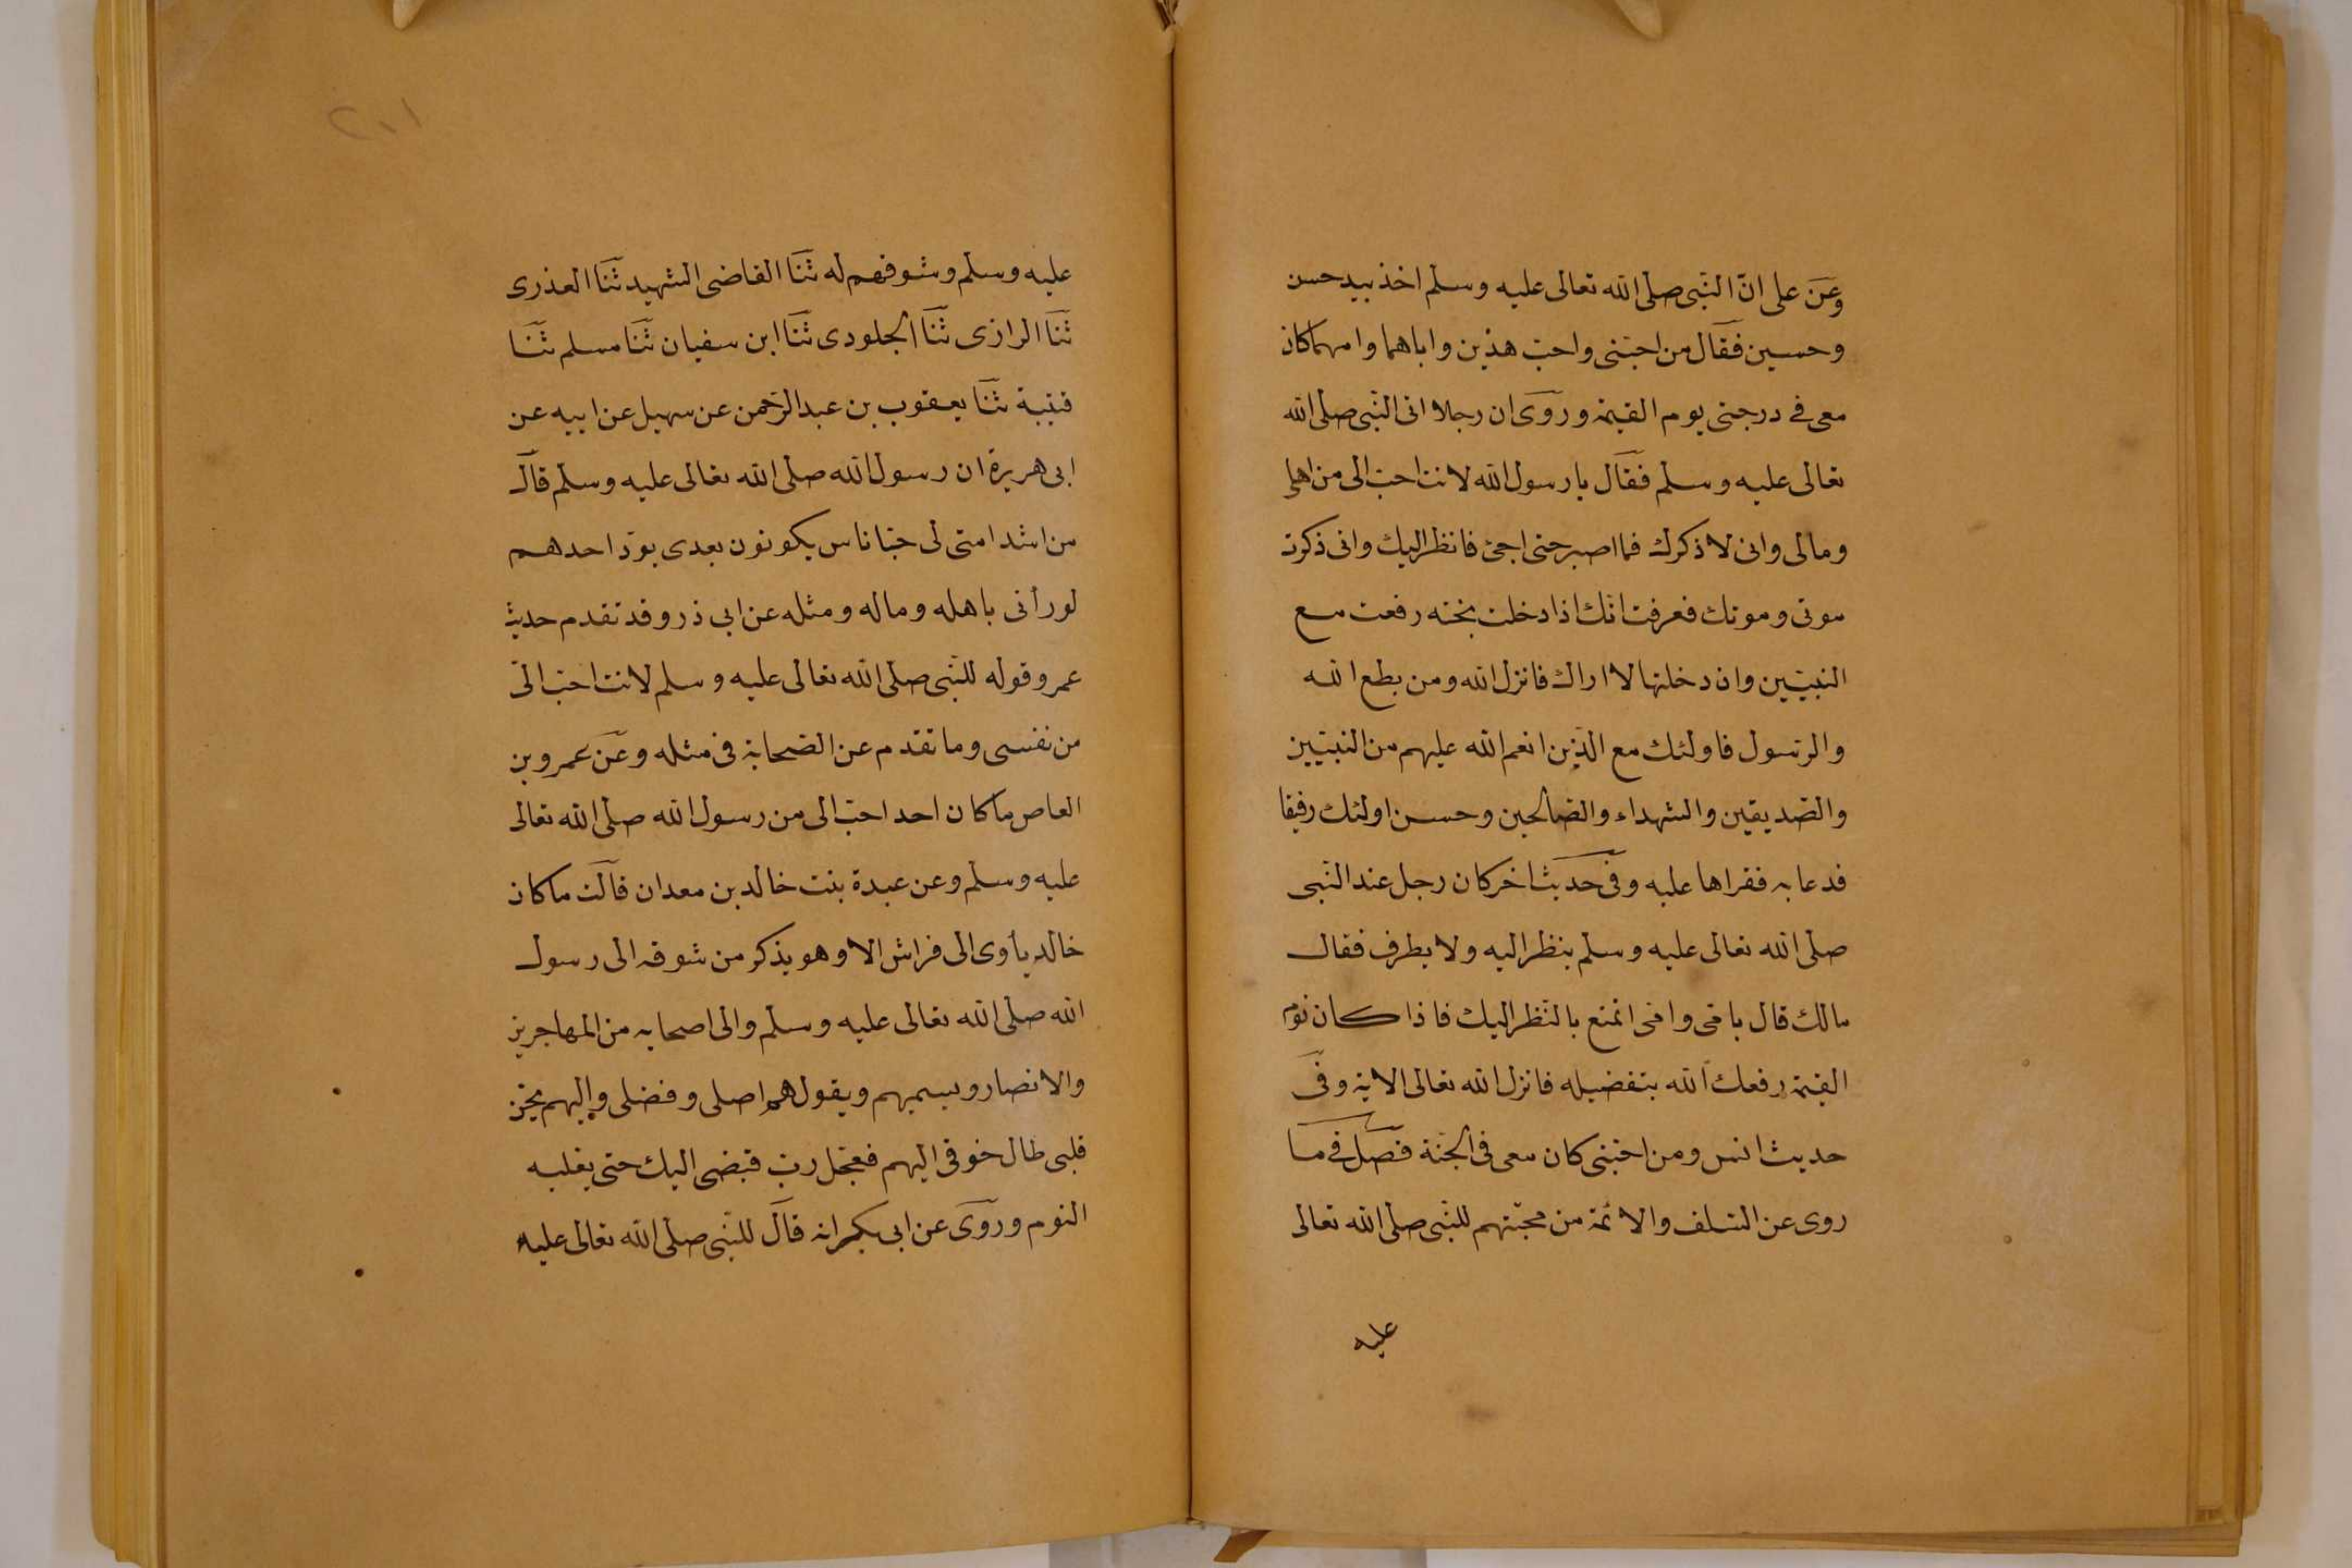 وعن على ان النبى صلى الله تعالى عليه وسلم اخذ بيد حسن
وحسين فقال من احبنى واحب هذين واباهما وامهما كان
معى فى درجتى يوم القيمة وروى ان رجلا اتى النبى صلى الله
تعالى عليه وسلم فقال يا رسول الله لانت احب الى من اهلى
ومالى وانى لاذكرك فما اصبر حتى اجئ فانظر اليك وانى ذكرت
موتى وموتك فعرفت انك اذا دخلت بخته رفعت مع
النبيين وان دخلتها لا اراك فانزل الله ومن يطع الله
والرسول فاولئك مع الذين انعم الله عليهم من النبيين
والصديقين والشهداء والصالحين وحسن اولئك رفيقا
فدعا به فقراها عليه وفى حديث اخر كان رجل عند النبى
صلى الله تعالى عليه وسلم ينظر اليه ولا يطرف فقال
مالك قال بابى وامى اتمتع بالنظر اليك فاذا كان يوم
القيمة رفعك الله بتفضيله فانزل الله تعالى الاية وفى
حديث انس ومن احبنى كان معى فى الجنة فصل فى ما
روى عن السلف والائمة من محبتهم للنبى صلى الله تعالى
عليه
٢٠١
عليه وسلم وشوقهم له ثنا القاضى الشهيد ثنا العذرى
ثنا الرازى ثنا الجلودى ثنا ابن سفيان ثنا مسلم ثنا
قتيبة ثنا يعقوب بن عبد الرحمن عن سهيل عن ابيه عن
ابى هريرة ان رسول الله صلى الله تعالى عليه وسلم قال
من اشد امتى لى حبا ناس يكونون بعدى يود احدهم
لو رأنى باهله وماله ومثله عن ابى ذر وقد تقدم حديث
عمر وقوله للنبى صلى الله تعالى عليه وسلم لانت احب الى
من نفسى وما تقدم عن الصحابة فى مثله وعن عمرو بن
العاص ما كان احد احب الى من رسول الله صلى الله تعالى
عليه وسلم وعن عبدة بنت خالد بن معدان قالت ما كان
خالد يأوى الى فراش الا وهو يذكر من شوقه الى رسول
الله صلى الله تعالى عليه وسلم والى اصحابه من المهاجرين
والانصار ويسميهم ويقول هم اصلى وفضلى واليهم يحن
قلبى طال خوقى اليهم فعجل رب قبضى اليك حتى يغلبه
النوم وروى عن ابى بكر انه قال للنبى صلى الله تعالى عليه